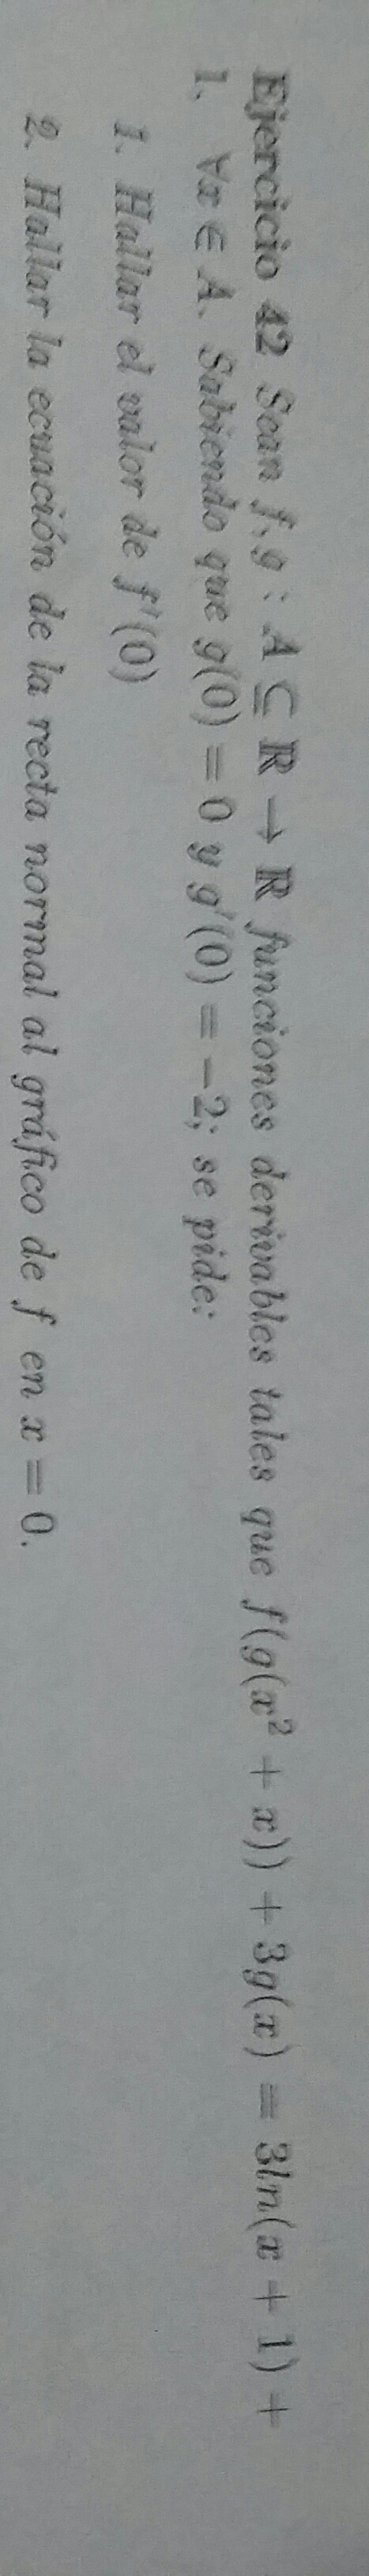 Ejercicio 42 Sean f, g : A ⊆ ℝ → ℝ funciones derivables tales que f(g(x² + x)) + 3g(x) = 3ln(x + 1) +
1, ∀x ∈ A. Sabiendo que g(0) = 0 y g'(0) = −2; se pide:
1. Hallar el valor de f'(0)
2. Hallar la ecuación de la recta normal al gráfico de f en x = 0.